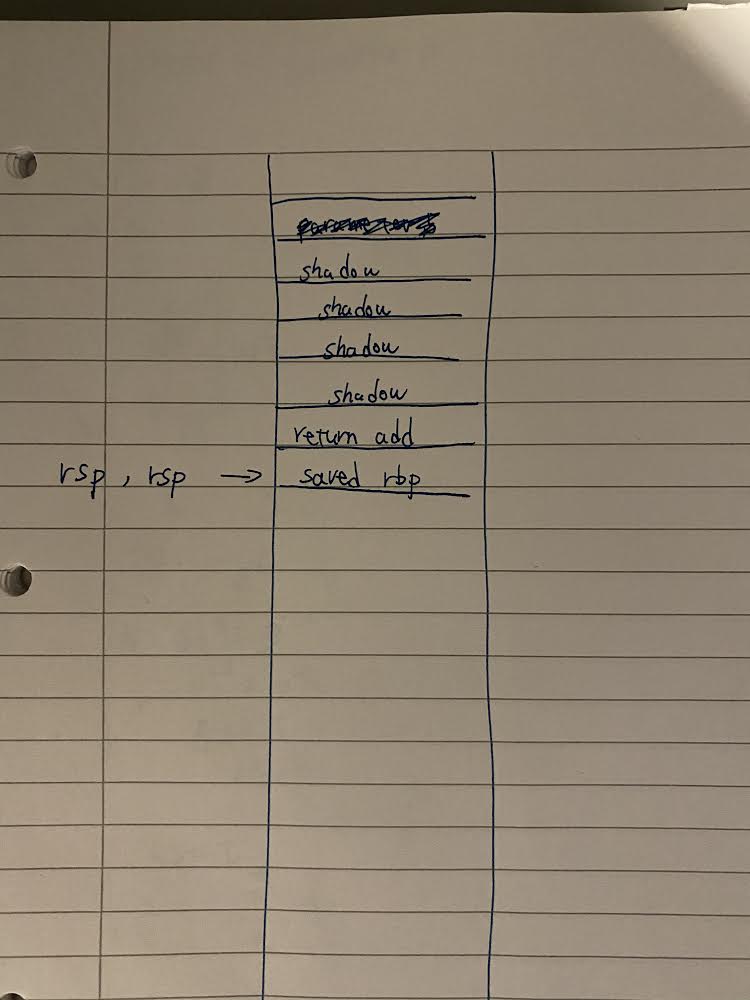 shadow
shadow
shadow
shadow
return add
rsp, rsp → saved rbp